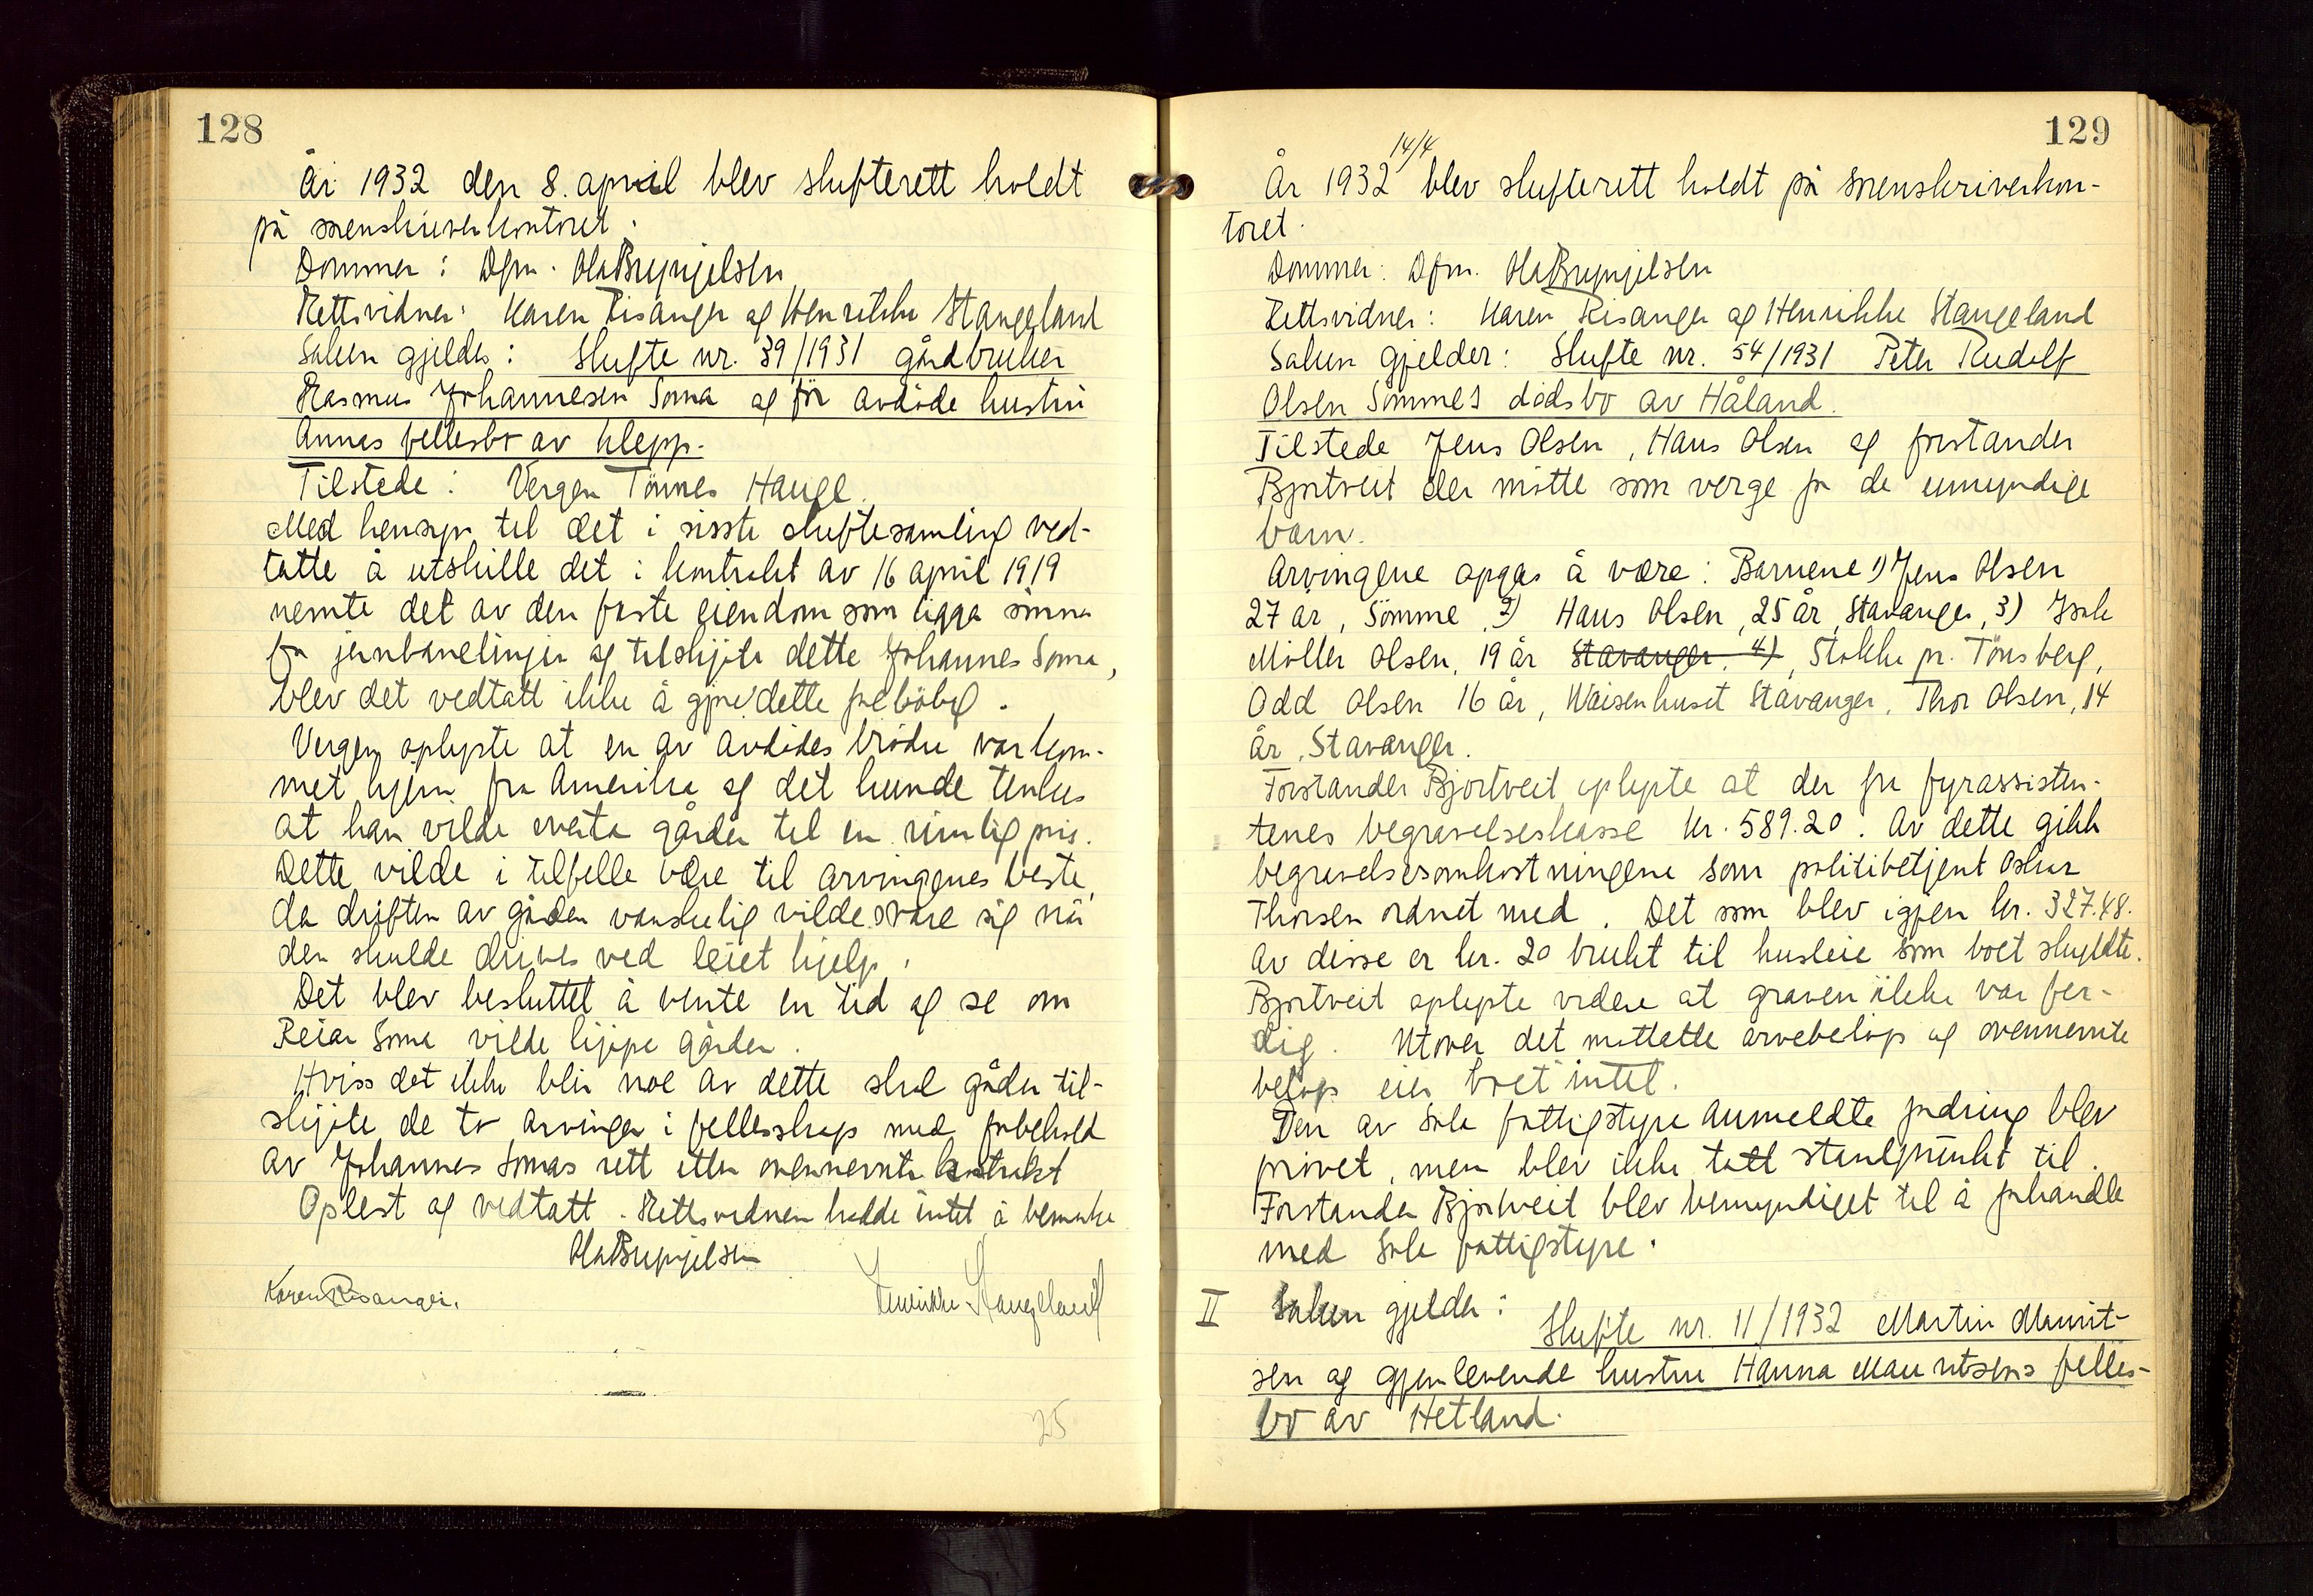 128
År 1932 den 8. april blev skifterett holdt
på sorenskriverkontoret.
Dommer: Dfm. Ola Brynjelsen
Rettsvidner: Karen Risanger og Henrikke Stangeland
Saken gjelder: Skifte nr. 39/1931 gårdbruker
Rasmus Johannesen Soma og før avdøde hustru
Annas fellesbo av Klepp.
Tilstede: Vergen Tønnes Hauge.
Med hensyn til det i siste skiftesamling ved-
tatte å utskille det i kontrakt av 16 april 1919
nevnte det av den faste eiendom som ligger
for jernbanelinjen og tilskjøte dette Johannes Soma,
blev det vedtatt ikke å gjøre dette foreløbig.
Vergen oplyste at en av avdødes brødre var kom-
met hjem fra Amerika og det kunde tenkes
at han vilde overta gården til en rimelig pris.
Dette vilde i tilfelle være til arvingenes beste,
da driften av gården vanskelig vilde svare sig når
den skulde drives ved leiet hjelp.
Det blev besluttet å vente en tid og se om
Reiar Soma vilde kjøpe gården.
Hviss det ikke blir noe av dette skal gården til-
skjøte de to arvinger i fellesskap med forbehold
av Johannes Somas rett etter ovennevnte kontrakt
Oplest og vedtatt. Rettsvidnene hadde intet å bemerke
Ola Brynjelsen
Karen Risanger. Henrikke Stangeland
25
129
År 1932 14/4 blev skifterett holdt på sorenskriverkon-
toret.
Dommer: Dfm. Ola Brynjelsen
Rettsvidner: Karen Risanger og Henrikke Stangeland
Saken gjelder: Skifte nr. 54/1931 Peter Rudolf
Olsen Sømmes dødsbo av Håland.
Tilstede Jens Olsen, Hans Olsen og forstander
Bjortveit der møtte som verge for de umyndige
barn.
Arvingene opgas å være: Barnene 1) Jens Olsen
27 år, Sømme, 2) Hans Olsen, 25 år, Stavanger, 3)
Møller Olsen, 19 år Stavanger, 4), Stokke pr. Tönsberg,
Odd Olsen 16 år, Waisenhuset Stavanger, Thor Olsen, 14
år, Stavanger.
Forstander Bjortveit oplyste at der fra fyrassisten-
tenes begravelseskasse kr. 589.20. Av dette gikk
begravelsesomkostningene som politibetjent Oskar
Thorsen ordnet med. Det som blev igjen kr. 327.48.
Av disse er kr. 20 brukt til husleie som boet skyldte.
Bjortveit oplyste videre at graven ikke var fer-
dig. Utover det mottatte arvebeløp og ovennevnte
beløp eier boet intet.
Den av Sola fattigstyre anmeldte fordring blev
prøvet, men blev ikke tatt standpunkt til.
Forstander Bjortveit blev bemyndiget til å forhandle
med Sola fattigstyre.
II Saken gjelder: Skifte nr. 11/1932 Martin Maurit-
sen og gjenlevende hustru Hanna Mauritsens felles-
bo av Hetland.